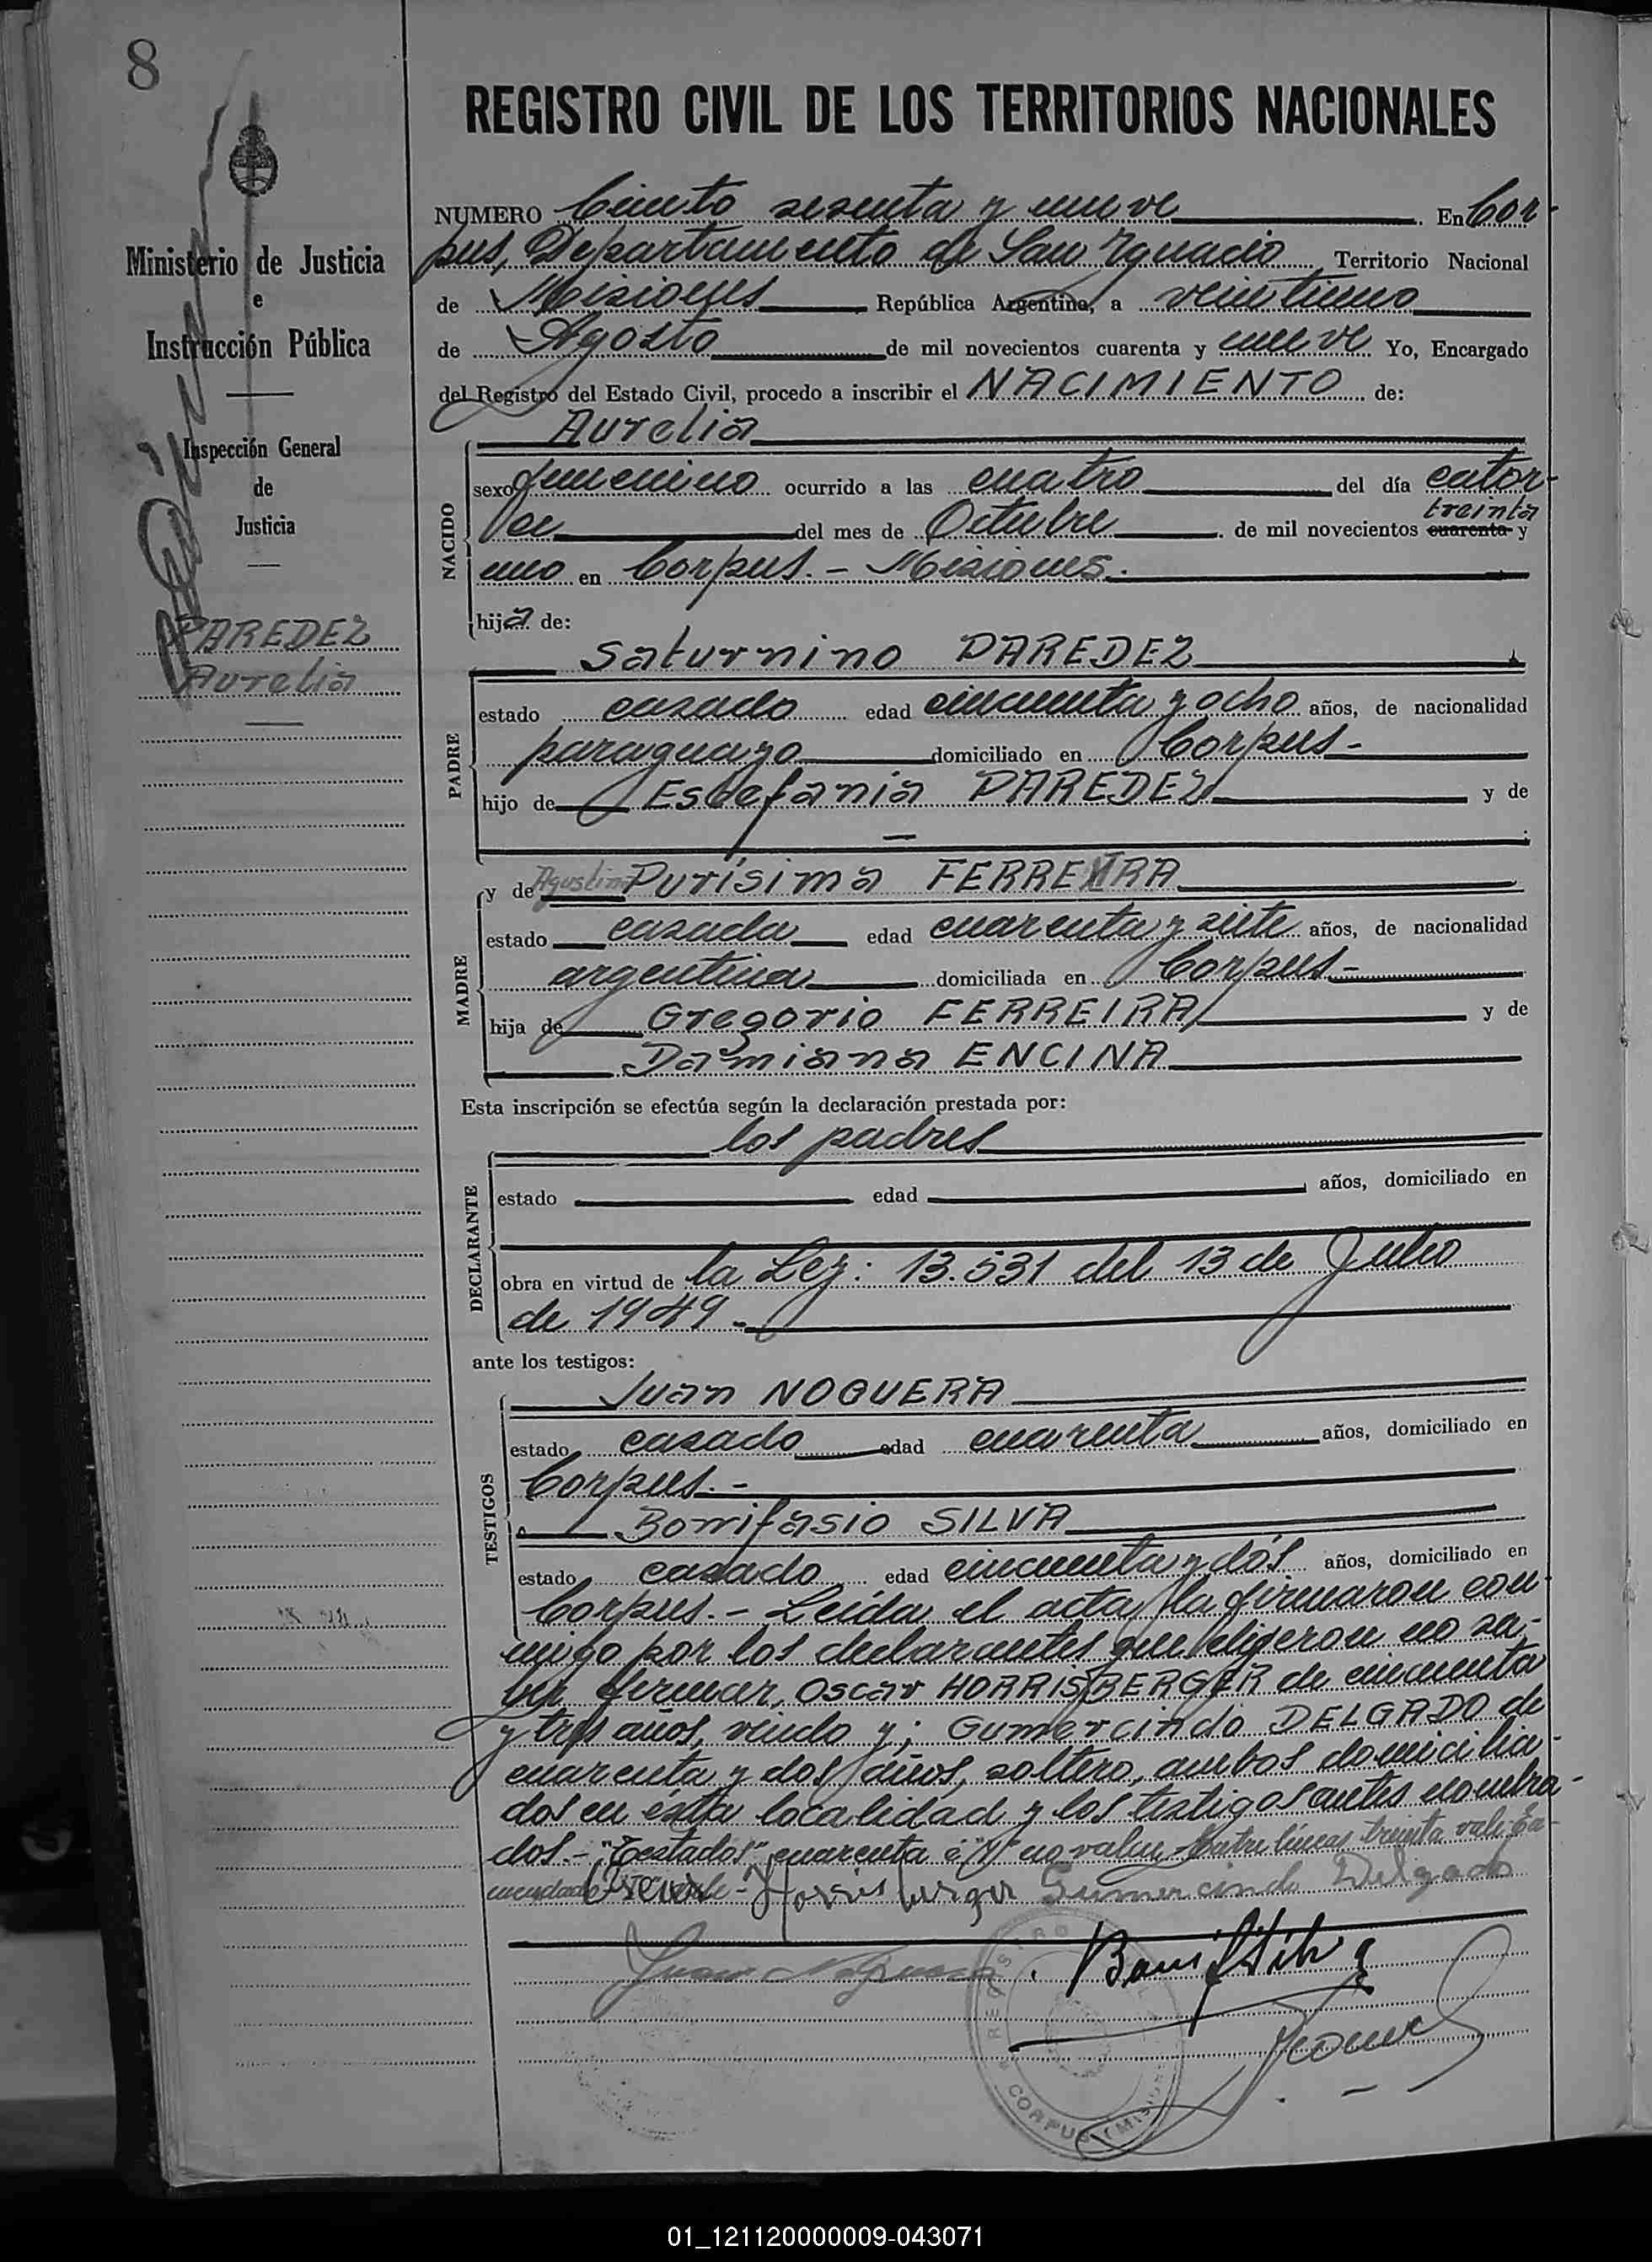 8
REGISTRO CIVIL DE LOS TERRITORIOS NACIONALES
Ministerio de Justicia
e
Instrucción Pública
Inspección General
de
Justicia
PAREDEZ
Aurelia
NUMERO Ciento sesenta y nueve. En Cor-
pus, Departamento de San Ygnacio Territorio Nacional
de Misiones República Argentina, a veintiuno
de Agosto de mil novecientos cuarenta y nueve Yo, Encargado
del Registro del Estado Civil, procedo a inscribir el NACIMIENTO de:
Aurelia
NACIDO
sexo femenino ocurrido a las cuatro del día cator-
treinta
ce del mes de Octubre de mil novecientos cuarenta y
uno en Corpus. - Misiones.
hija de:
Saturnino PAREDEZ
PADRE
estado casado edad cincuenta y ocho años, de nacionalidad
paraguayo domiciliado en Corpus-
hijo de Estefania PAREDEZ y de
y de Agustina Purísima FERREIRA
MADRE
estado casada edad cuarenta y siete años, de nacionalidad
argentina domiciliada en Corpus-
hija de Gregorio FERREIRA y de
Damiana ENCINA
Esta inscripción se efectúa según la declaración prestada por:
los padres
DECLARANTE
estado edad años, domiciliado en
obra en virtud de la Ley: 13.531 del 13 de Julio
de 1949.-
ante los testigos:
Juan NOGUERA
TESTIGOS
estado casado edad cuarenta años, domiciliado en
Corpus.-
Bonifasio SILVA
estado casado edad cincuenta y dós años, domiciliado en
Corpus.- Leída el acta, la firmaron con-
migo por los declarantes que digeron no sa-
ber firmar, Oscar HORRISBERGER de cincuenta
y tres años, viudo y; Gumercindo DELGADO de
cuarenta y dos años, soltero, ambos domicilia-
dos en ésta localidad y los testigos antes nombra-
dos.- "Testados" cuarenta é "Y" no valen. Entre líneas treinta vale. En-
Horrisberger Gumercindo Delgado
Juan Noguera. Bonif Silva
REGISTRO
CORPUS (MISIONES)
01_121120000009-043071